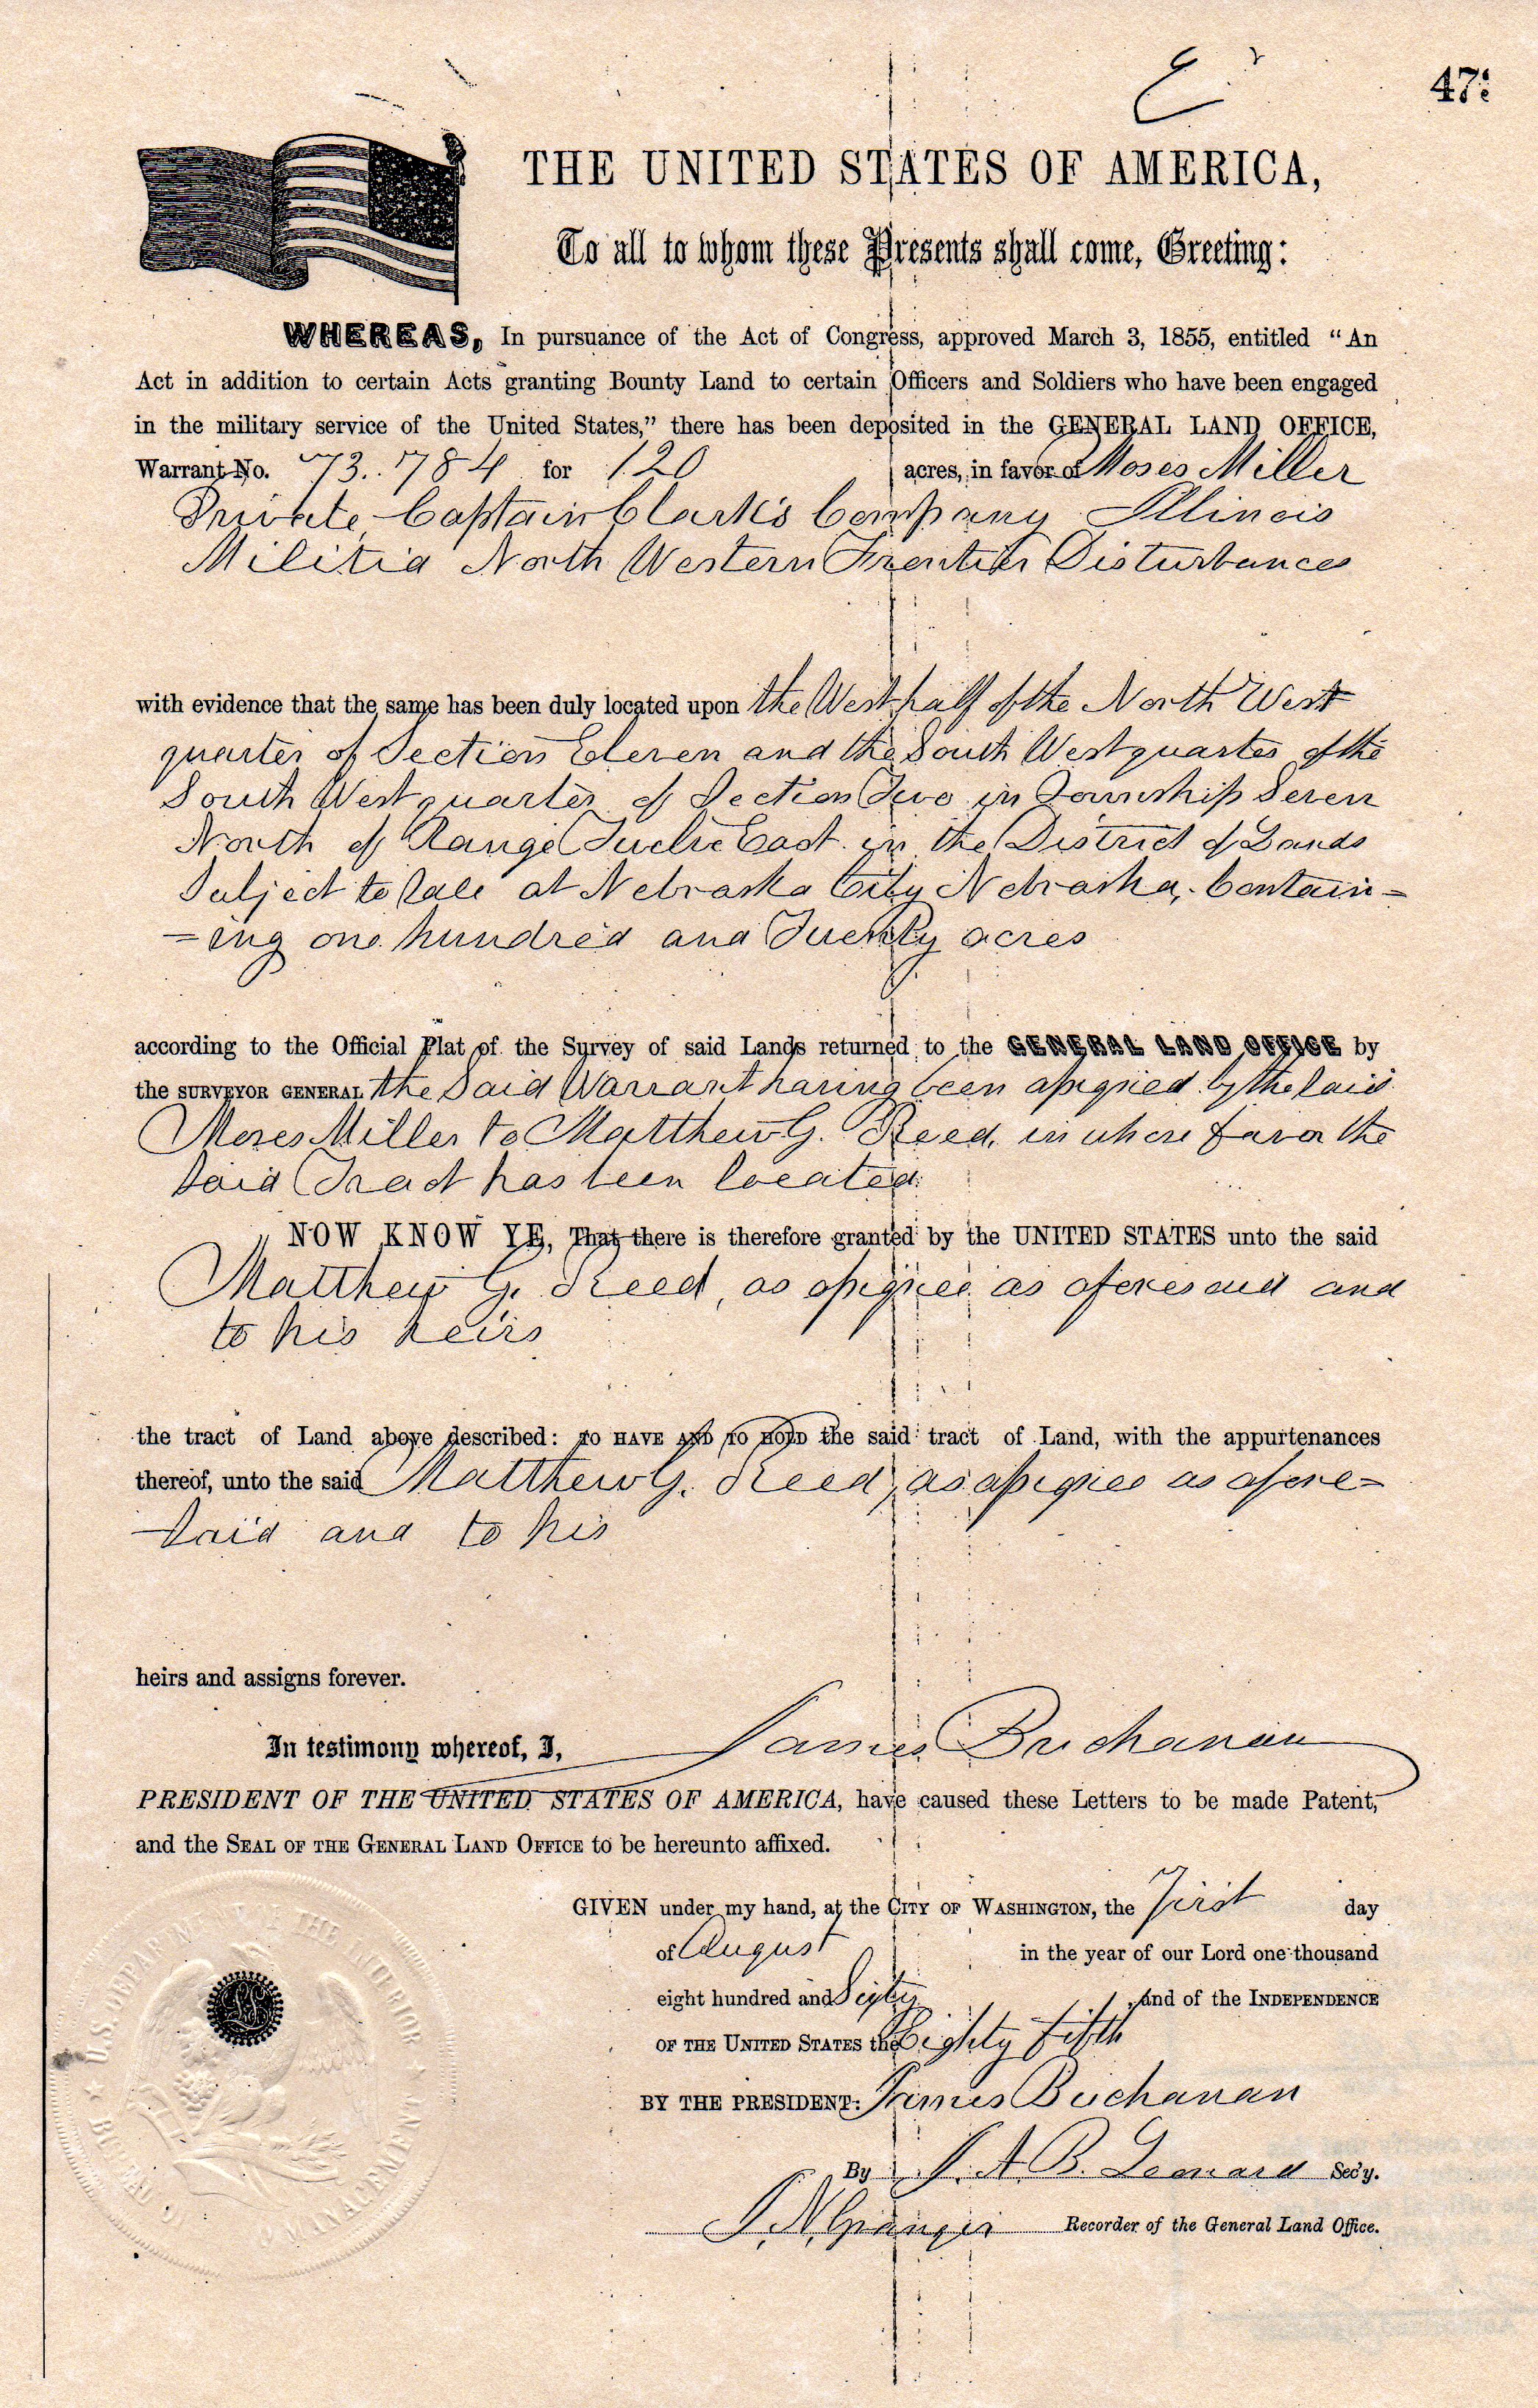 E
47
THE UNITED STATES OF AMERICA,
To all to whom these Presents shall come, Greeting:
WHEREAS, In pursuance of the Act of Congress, approved March 3, 1855, entitled "An
Act in addition to certain Acts granting Bounty Land to certain Officers and Soldiers who have been engaged
in the military service of the United States," there has been deposited in the GENERAL LAND OFFICE,
Warrant No. 73.784 for 120 acres, in favor of Moses Miller
Private Captain Clark's Company Illinois
Militia North Western Frontier Disturbances
with evidence that the same has been duly located upon the West half of the North West
quarter of Section Eleven and the South West quarter of the
South West quarter of Section Two in Township Seven
North of Range Twelve East in the District of Lands
Subject to Sale at Nebraska City Nebraska, Contain=
=ing one hundred and Twenty acres
according to the Official Plat of the Survey of said Lands returned to the GENERAL LAND OFFICE by
the SURVEYOR GENERAL the said Warrant having been assigned by the said
Moses Miller to Matthew G. Reed, in whose favor the
said Tract has been located.
NOW KNOW YE, That there is therefore granted by the UNITED STATES unto the said
Matthew G. Reed, as assignee as aforesaid and
to his heirs
the tract of Land above described: TO HAVE AND TO HOLD the said tract of Land, with the appurtenances
thereof, unto the said Matthew G. Reed, as assignee as afore=
said and to his
heirs and assigns forever.
In testimony whereof, I, James Buchanan
PRESIDENT OF THE UNITED STATES OF AMERICA, have caused these Letters to be made Patent,
and the SEAL OF THE GENERAL LAND OFFICE to be hereunto affixed.
GIVEN under my hand, at the CITY OF WASHINGTON, the First day
of August in the year of our Lord one thousand
eight hundred and Sixty, and of the INDEPENDENCE
OF THE UNITED STATES the Eighty fifth
BY THE PRESIDENT: James Buchanan
By J. A. B. Leonard Sec'y.
J. N. Granger Recorder of the General Land Office.
U.S. DEPARTMENT OF THE INTERIOR
BUREAU OF LAND MANAGEMENT
LS